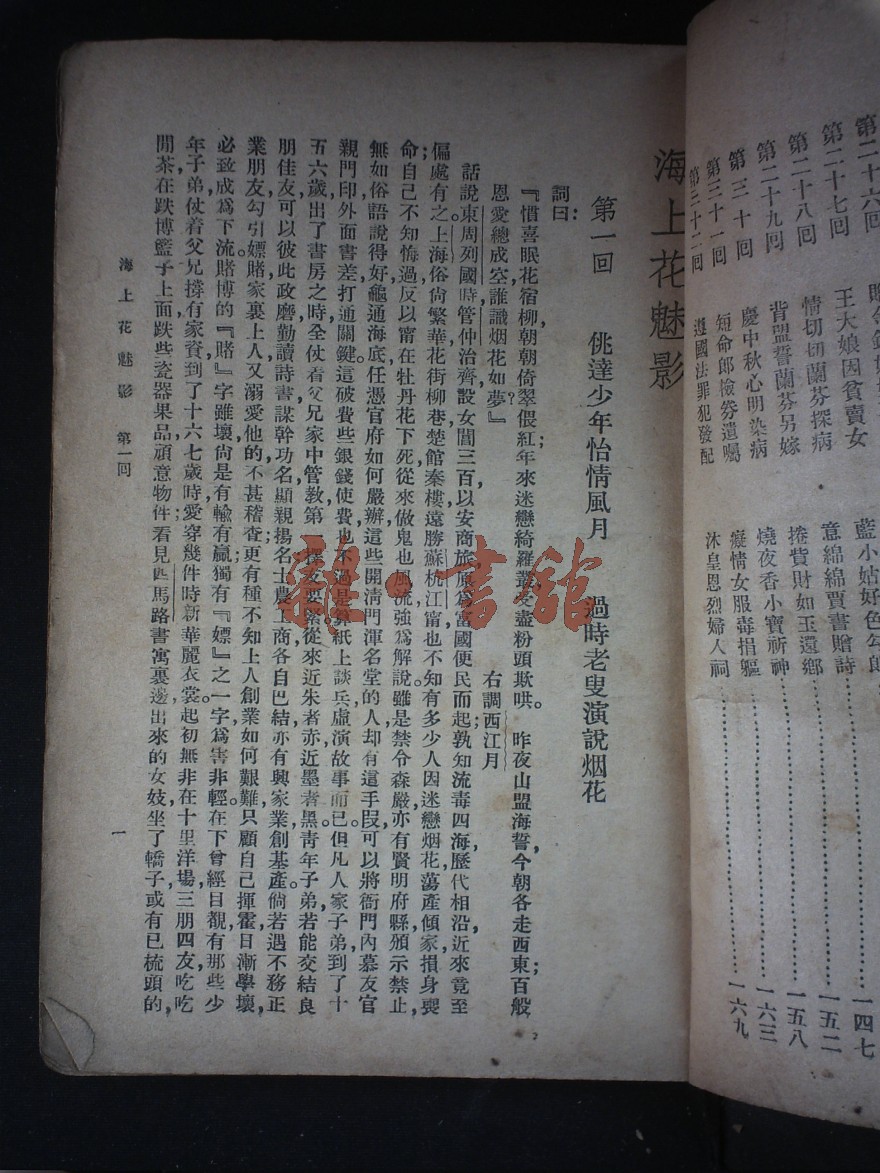 第二十六回
第二十七回 王大娘因貧賣女 一四七
第二十八回 情切切蘭芬探病 意綿綿賈書贈詩 一五二
第二十九回 背盟誓蘭芬另嫁 捲貲財如玉還鄉 一五八
第三十回 慶中秋心明染病 燒夜香小寶祈神 一六三
第三十一回 短命郎檢券遺囑 癡情女服毒捐軀 一六九
第三十二回 遵國法罪犯發配 沐皇恩烈婦入祠
海上花魅影
第一回 佻達少年怡情風月 過時老叟演說烟花
詞曰：
『惜喜眠花宿柳，朝朝倚翠偎紅，年來迷戀綺羅叢，受盡粉頭欺哄。昨夜山盟海誓，今朝各走西東；百般
恩愛總成空，誰識烟花如夢？』 右調西江月
話說東周列國時，管仲治齊，設女閭三百，以安商旅，原爲富國便民而起，孰知流毒四海，歷代相沿，近來竟至
偏處有之。上海俗尙繁華，花街柳巷，楚館秦樓，遠勝蘇杭江甯，也不知有多少人因迷戀烟花，蕩產傾家，損身喪
命，自己不知悔過，反以甯在牡丹花下死，從來做鬼也風流，強爲解說。雖是禁令森嚴，亦有賢明府縣，頒示禁止；
無如俗語說得好，龜通海底，任憑官府如何嚴辦，這些開清門渾名堂的人，却有這手段，可以將衙門內幕友官
親，門印外面書差，打通關鍵，這破費些銀錢使費，也不過是算紙上談兵，虛演故事而已。但凡人家子弟，到了十
五六歲，出了書房之時，全仗着父兄家中管教，第一擇友要緊，從來近朱者赤，近墨者黑。青年子弟，若能交結良
朋佳友，可以彼此政磨，勤讀詩書，謀幹功名，顯親揚名；士農工商，各自巴結，亦有興家業創基產。倘若遇不務正
業朋友，勾引嫖賭，家裏上人又溺愛他的，不甚稽查；更有種不知上人創業如何艱難，只顧自己揮霍，日漸學壞，
必致成爲下流。賭博的『賭』字雖壞，尙是有輸有贏，獨有『嫖』之一字，爲害非輕。在下曾經目覩有那些少
年子弟，仗着父兄撐有家資，到了十六七歲時，愛穿幾件時新華麗衣裳，起初無非在十里洋場，三朋四友，吃吃
閒茶，在跌博籃子上面，跌些瓷器果品，頑意物件；看見四馬路書寓裏邊出來的女妓，坐了轎子，或有已梳頭的，
海上花魅影 第一回 一
龍一書館